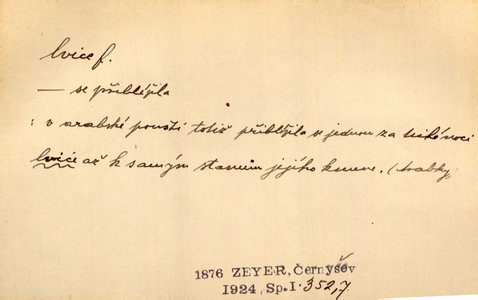 lvice f.
— se přiblížila
: v arabské poušti totiž přiblížila se jednou za tiché noci
lvice až k samým stanům jejího kmene. (Arabky)
1876 ZEYER, Černyšev
1924, Sp. I. 352,7